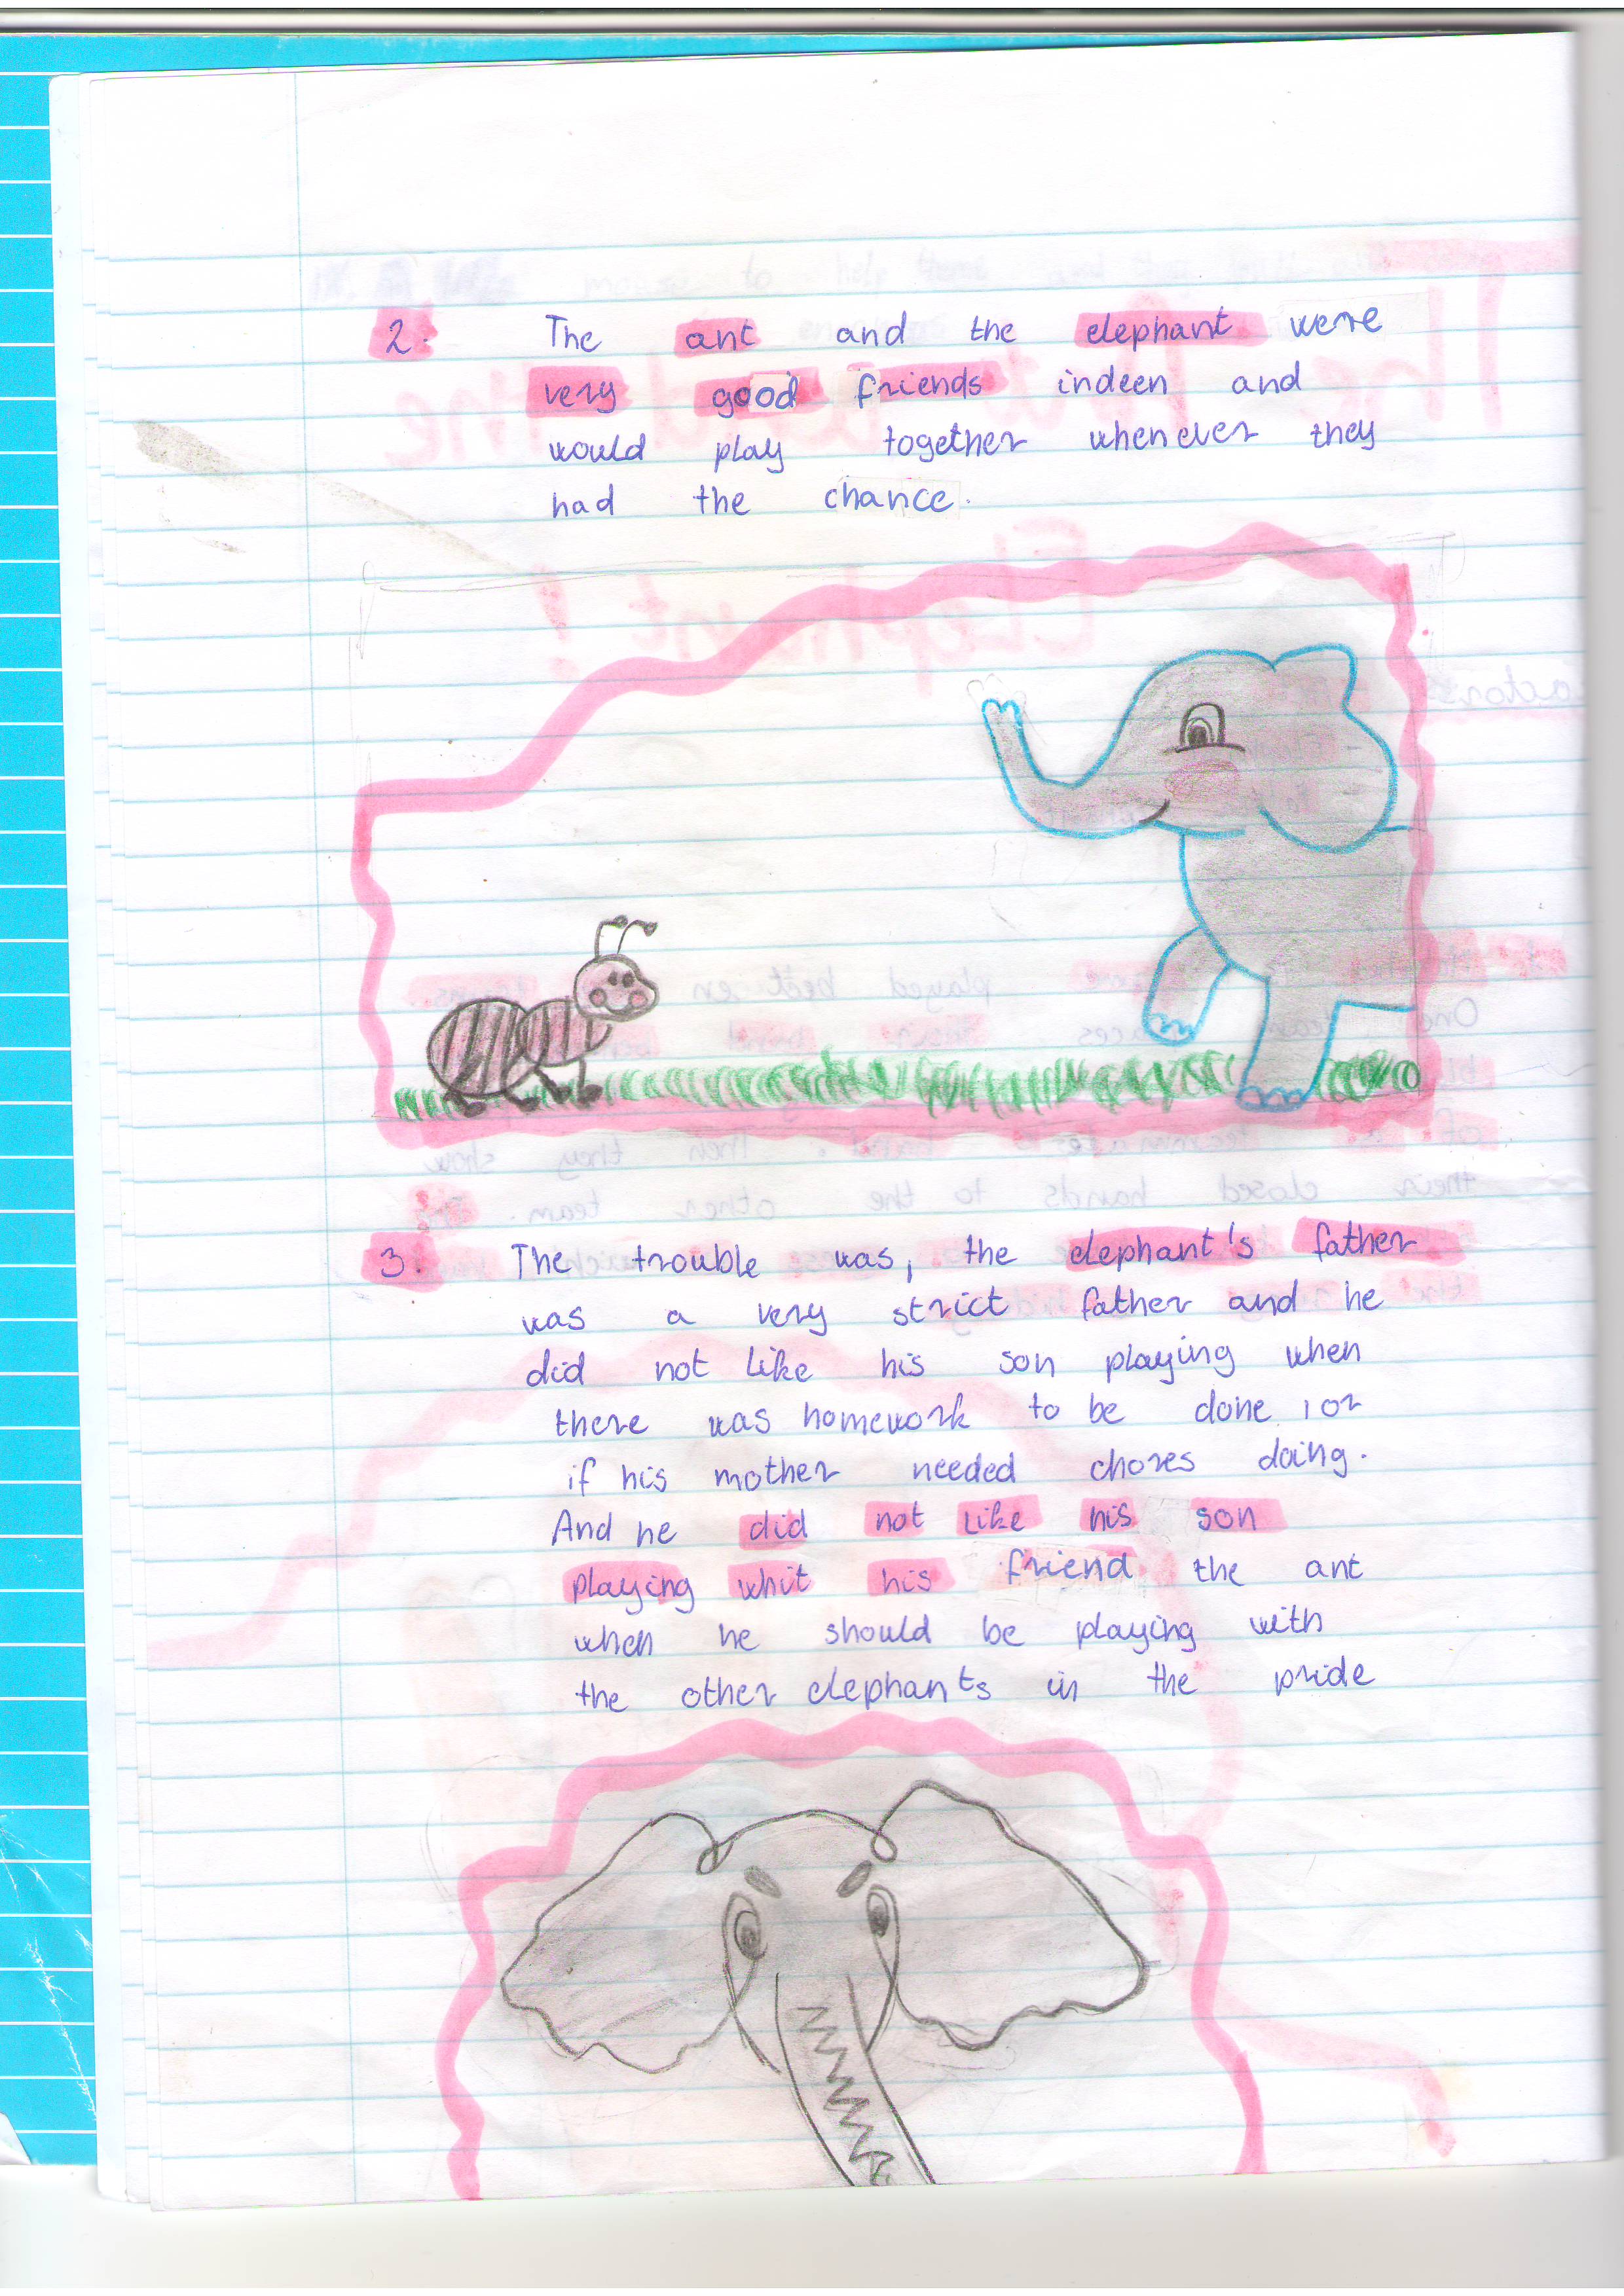 2. The ant and the elephant were
very good friends indeen and
would play together whenever they
had the chance.
3. The trouble was, the elephant's father
was a very strict father and he
did not like his son playing when
there was homework to be done, or
if his mother needed chores doing.
And he did not like his son
playing whit his friend the ant
when he should be playing with
the other elephants in the pride